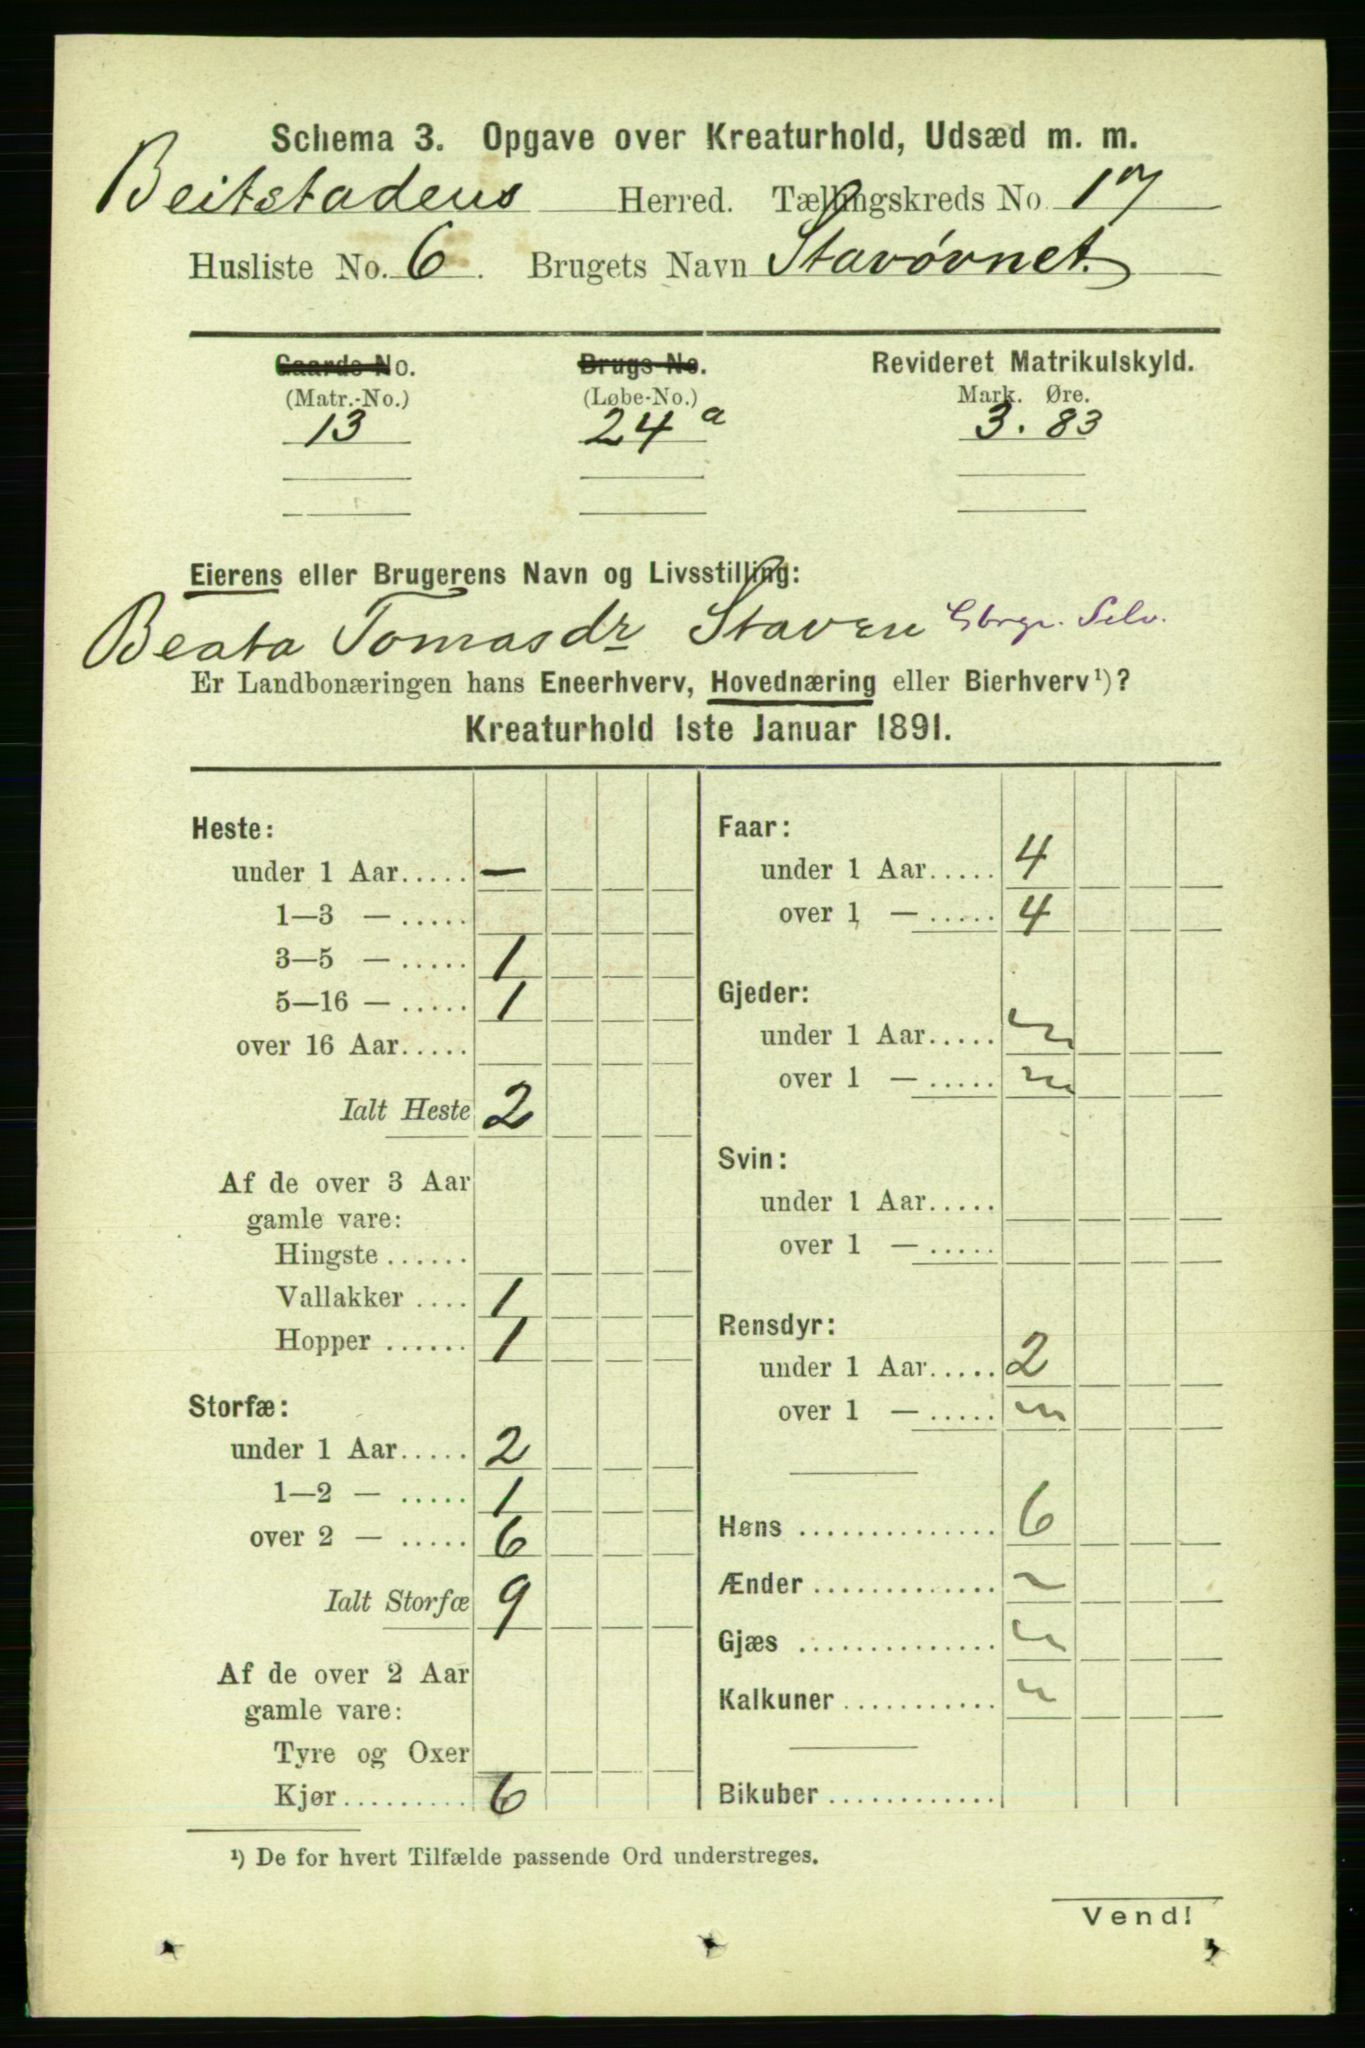 Schema 3. Opgave over Kreaturhold, Udsæd m. m.
Beitstadens Herred. Tællingskreds No. 17
Husliste No. 6. Brugets Navn Stavøvnet.
Gaards-No. Brugs-No. Revideret Matrikulskyld.
(Matr.-No.) (Løbe-No.) Mark. Øre.
13 24 a 3. 83
Eierens eller Brugerens Navn og Livsstilling:
Beata Tomasdr Staven Gbrgr. Selv.
Er Landbonæringen hans Eneerhverv, Hovednæring eller Bierhverv¹)?
Kreaturhold 1ste Januar 1891.
Heste:
under 1 Aar..... —
1—3 — .....
3—5 — ..... 1
5—16 — ..... 1
over 16 Aar.....
Ialt Heste 2
Af de over 3 Aar
gamle vare:
Hingste ......
Vallakker .... 1
Hopper ...... 1
Storfæ:
under 1 Aar..... 2
1—2 — ..... 1
over 2 — ..... 6
Ialt Storfæ 9
Af de over 2 Aar
gamle vare:
Tyre og Oxer
Kjør......... 6
Faar:
under 1 Aar..... 4
over 1 — ..... 4
Gjeder:
under 1 Aar..... "
over 1 — ..... "
Svin:
under 1 Aar.....
over 1 — .....
Rensdyr:
under 1 Aar..... 2
over 1 — ..... "
Høns .............. 6
Ænder ............. "
Gjæs .............. "
Kalkuner ........... "
Bikuber ............
¹) De for hvert Tilfælde passende Ord understreges.
Vend!